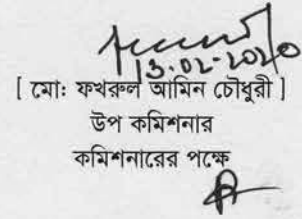 13.02-2020
[ মোঃ ফখরুল আমিন চৌধুরী ]
উপ কমিশনার
কমিশনারের পক্ষে